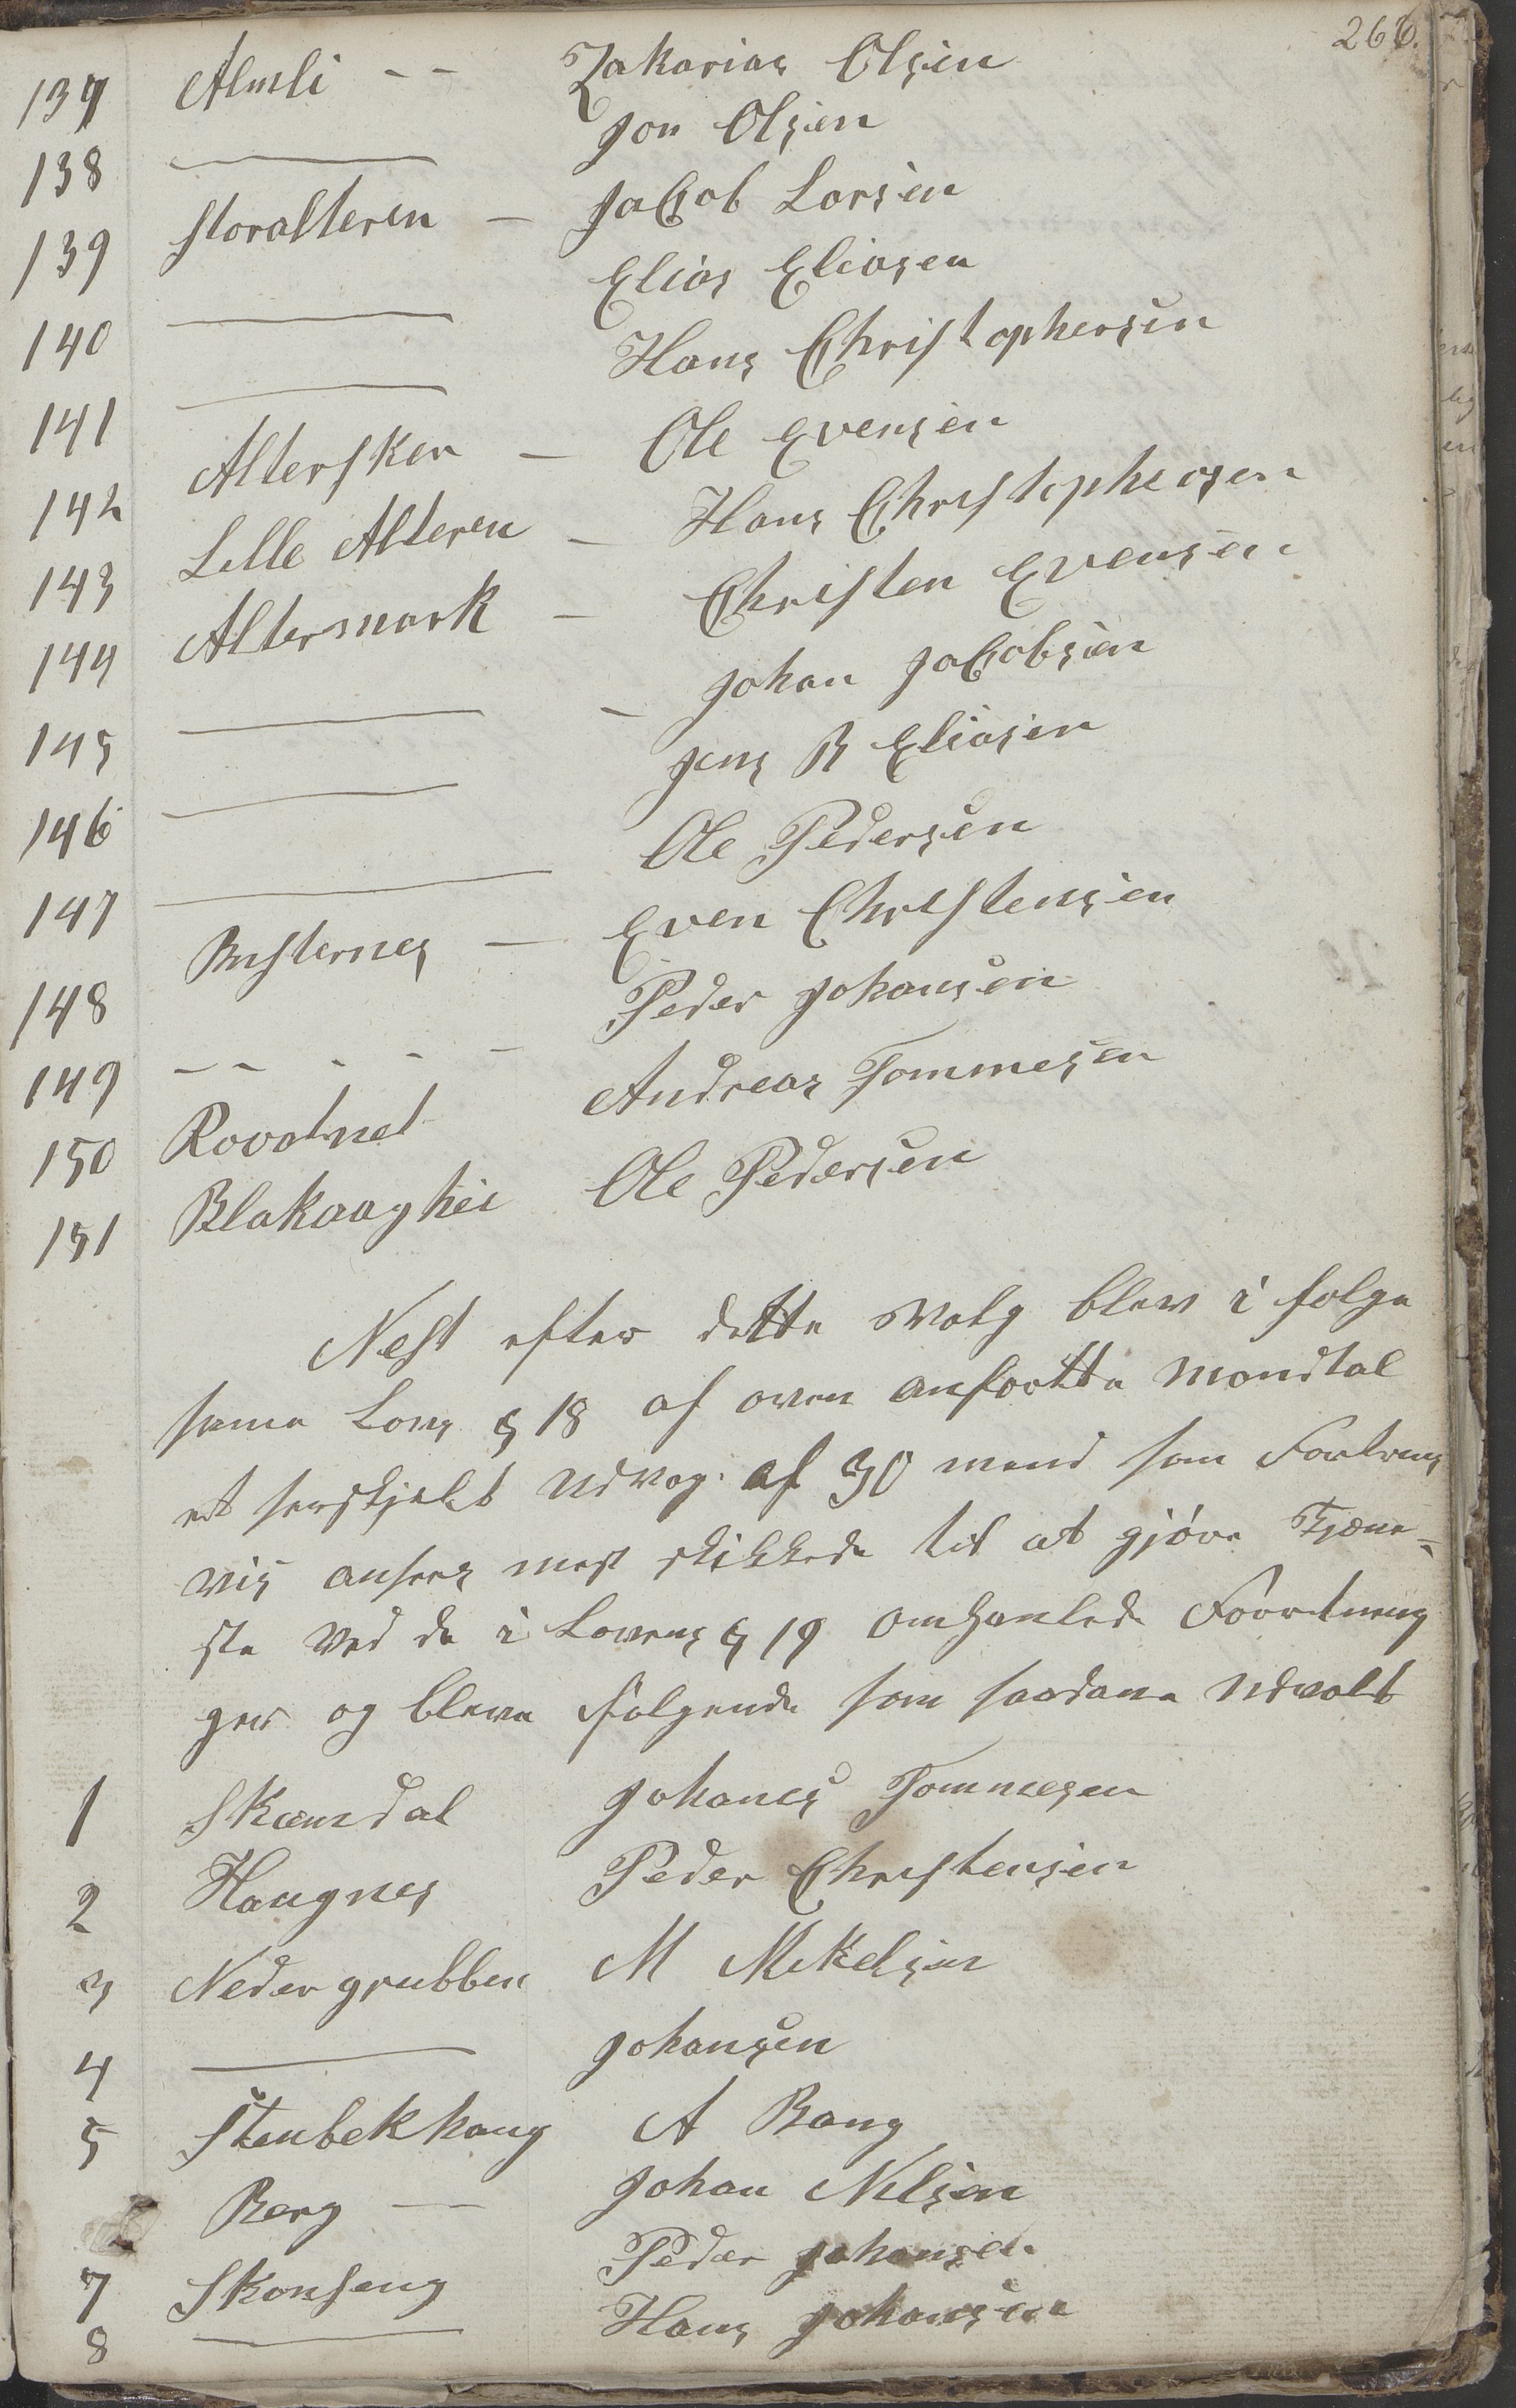 266.
137 Almli - - Zakarias Olsen
138 — Jon Olsen
139 Storalteren - Jacob Larsen
140 — Elias Eliasen
141 — Hans Christophersen
142 Altersken - Ole Evensen
143 Lille Alteren - Hans Christophersen
144 Altermark - Christen Evensen
145 — - Johan Jacobsen
146 — Jens B Eliasen
147 — Ole Pedersen
148 Busternes - Even Christensen
149 - - - - - Peder Johansen
150 Rovatnet Andreas Tommesen
151 Blakaaghei Ole Pedersen
Nest efter dette Valg blev i følge
sama Lovs § 18 af oven anførtte Mandtal
et serskjelt Udvag af 30 mend som Fortrins
vis ansees mest skikkede til at gjöre Tjene-
ste ved de i Lovens § 19 omhanlede Forretning
ger og bleve følgende som saadana Udvalt
1 Skamdal Johanes Tommesen
2 Haugnes Peder Christensen
3 Nedergrubben M Mikelsen
4 — Johansen
5 Stenbekhaug A Bang
Berg — Johan Nilsen
7 Skonseng Peder Johansen
8 — Hans Johansen